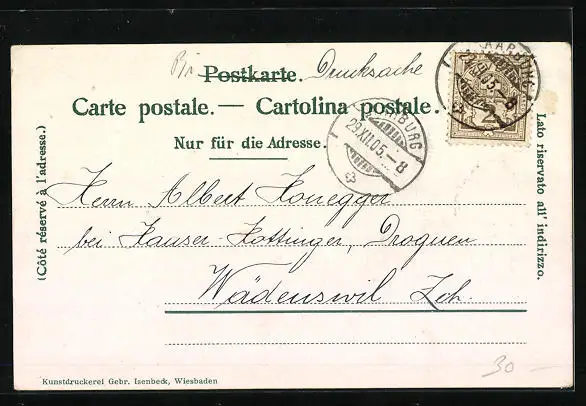 Postkarte. Drucksache
Carte postale. — Cartolina postale.
Nur für die Adresse.
AARBURG
29.XII.05.–8
AARBURG
29.XII.05.–8
2
(Côté réservé à l'adresse.)
Lato riservato all' indirizzo.
Herrn Albert Honegger
bei Hauser-Hottinger, Droguen
Wädenswil Zch.
30 –
Kunstdruckerei Gebr. Isenbeck, Wiesbaden